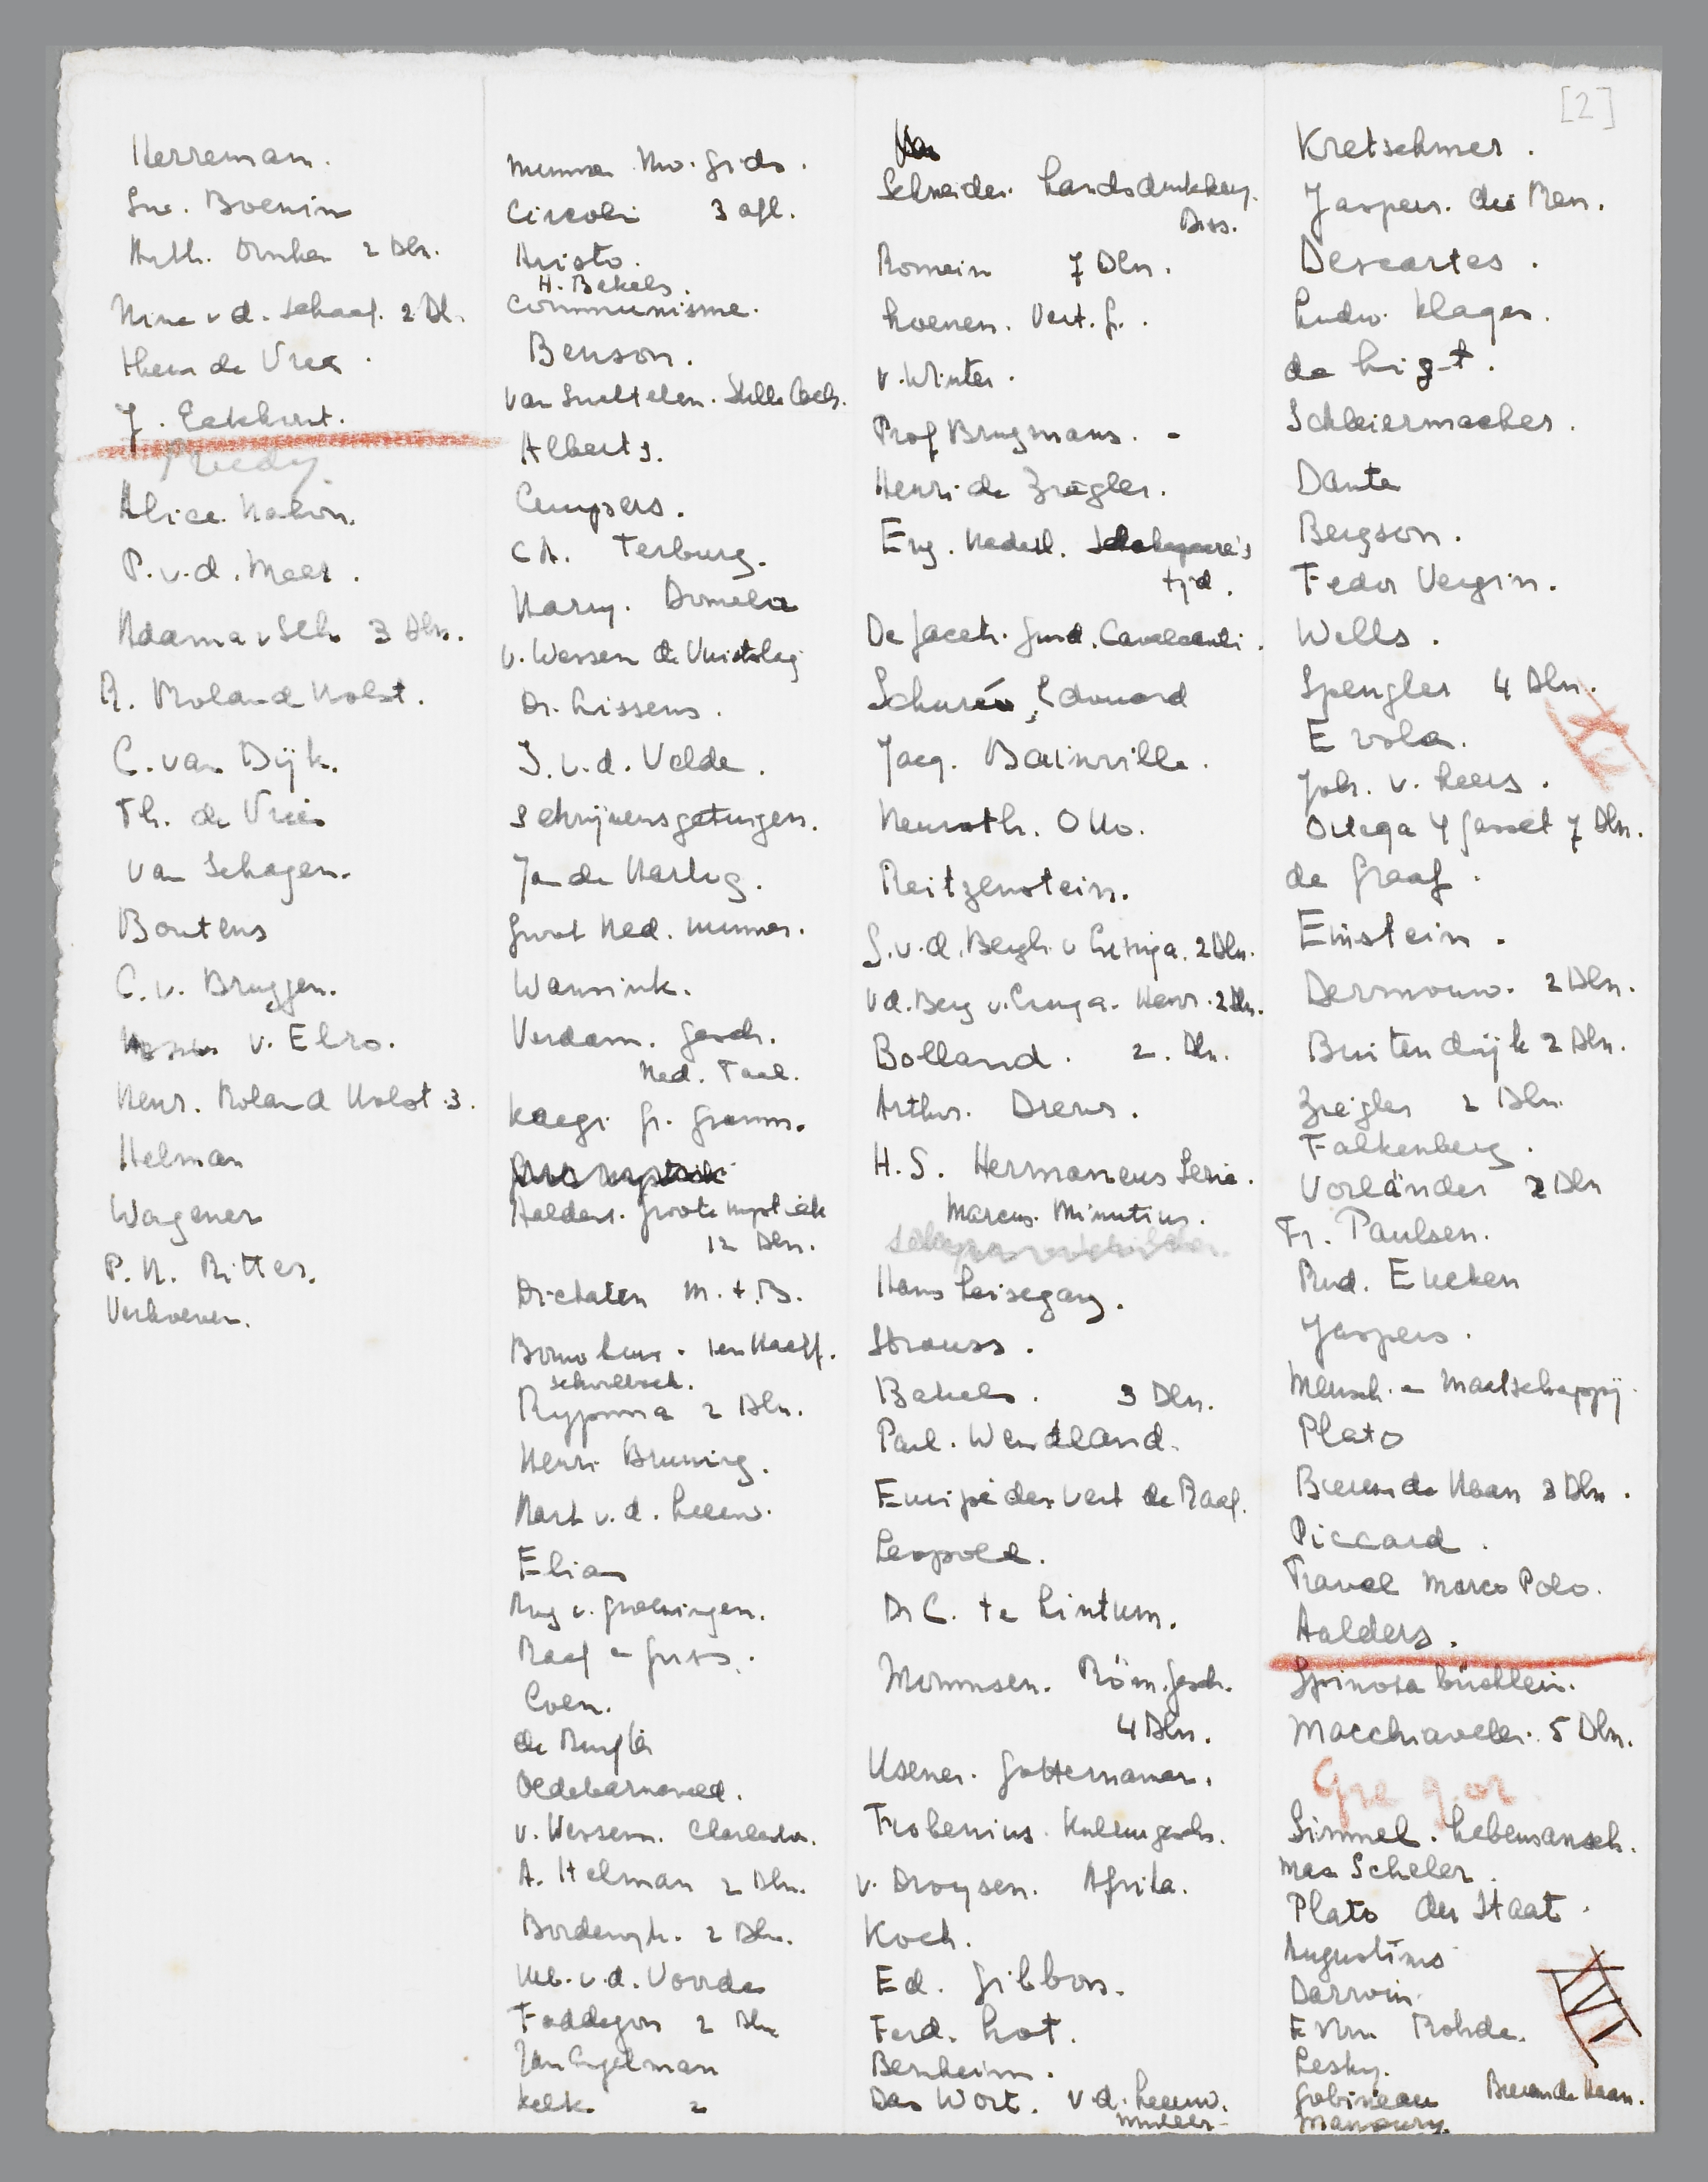 [2]
Herreman.
Boenin
Arth. 2 Dln.
Nine v d. Schaaf. 2 Dl.
Theun de Vries.
J. Eckhart.
Alice Nahon.
P. v. d. Meer.
Adama v Sch. 3 Dln.
R. Roland Holst.
C. van Dijk.
Th. de Vries
van Schagen.
Boutens
C. v. Bruggen.
v. Elro.
Henr. Roland Holst. 3.
Helman
Wagener
P. H. Ritter.
Verhoeven.
Nummer Gids.
Circoli 3 afl.
Aristo.
H. Bakels.
Communisme.
Benson.
Alberts.
Cempers.
CA. Terburg.
Harry. Domela
v. Wessem de Vuistslag
Dr. Lissens.
J. v. d. Velde.
Schrijversgetuigen.
Jan de Hartog.
Groot Ned. nummer.
Wansink.
Verdam. Gesch.
Ned. Taal.
Kaegi Gr. Gramm.
Aalders. Groote mystiek
12 Dln.
Dictaten M. + B.
schoolboek.
Rypma 2 Dln.
Henri Bruning.
Hart v. d. Leeuw.
Elias
Raaf en Griss.
Coen.
Oldebarneveld.
v. Wessem. Charleston.
A. Helman 2 Dln.
Bordewijk. 2 Dln.
Urb. v. d. Voorde
Foddegon 2 Dln
Jan Engelman
Kelk 2
Schneider. Landsdrukkerij.
Diss.
Romein 7 Dln.
Loenen. Vert. Gr.
v. Winter.
Prof Brugmans. -
Henri de Ziegler.
Eng. Nederl. Shakespeare's
tijd.
Cavalcanti.
Schuré, Edouard
Jacq. Bainville.
Neurath. Otto.
Reitzenstein.
G. v. d. Bergh v Eysinga. 2 Dln.
v d. Berg v. Eysinga. Henr. 2 Dln.
Bolland. 2. Dln.
Arthur. Drews.
H. S. Hermaneus Serie.
Marcus. Minutius.
Hans Leisegang.
Strauss.
Bakels. 3 Dln.
Paul. Wendland.
Euripides vert de Raaf.
Leopold.
Dr C. te Lintum.
Mommsen. Röm. Gesch.
4 Dln.
Usener. Götternamen.
Frobenius. Kulturgesch.
v. Droysen. Afrika.
Koch.
Ed. Gibbon.
Ferd. Lot.
Bernheim.
Das Wort. v. d. Leeuw.
Muller
Kretschmer.
Jaspers. die Men.
Descartes.
Ludw. Klages.
de Ligt.
Schleiermacher.
Dante
Bergson.
Fedor Vergin.
Wells.
Spengler 4 Dln.
Evola.
Joh. v. Leers.
Ortega Y Gasset 7 Dln.
de Graaf.
Einstein.
Dermouw. 2 Dln.
Buitendijk 2 Dln.
Ziegler 2 Dln.
Falkenberg.
Vorländer 2 Dln
Fr. Paulsen.
Rud. Eucken
Jaspers.
Mensch. en Maatschappij.
Plato
Bierens de Haan 3 Dln.
Piccard.
Travel Marco Polo.
Aalders.
Spinoza büchlein.
Macchiavelli. 5 Dln.
Simmel. Lebensansch.
Max Scheler.
Plato der Staat.
Augustinus
Darwin.
XVI
Erwin Rohde.
Lesky.
Gobineau Bierens de Haan.
Mannoury.